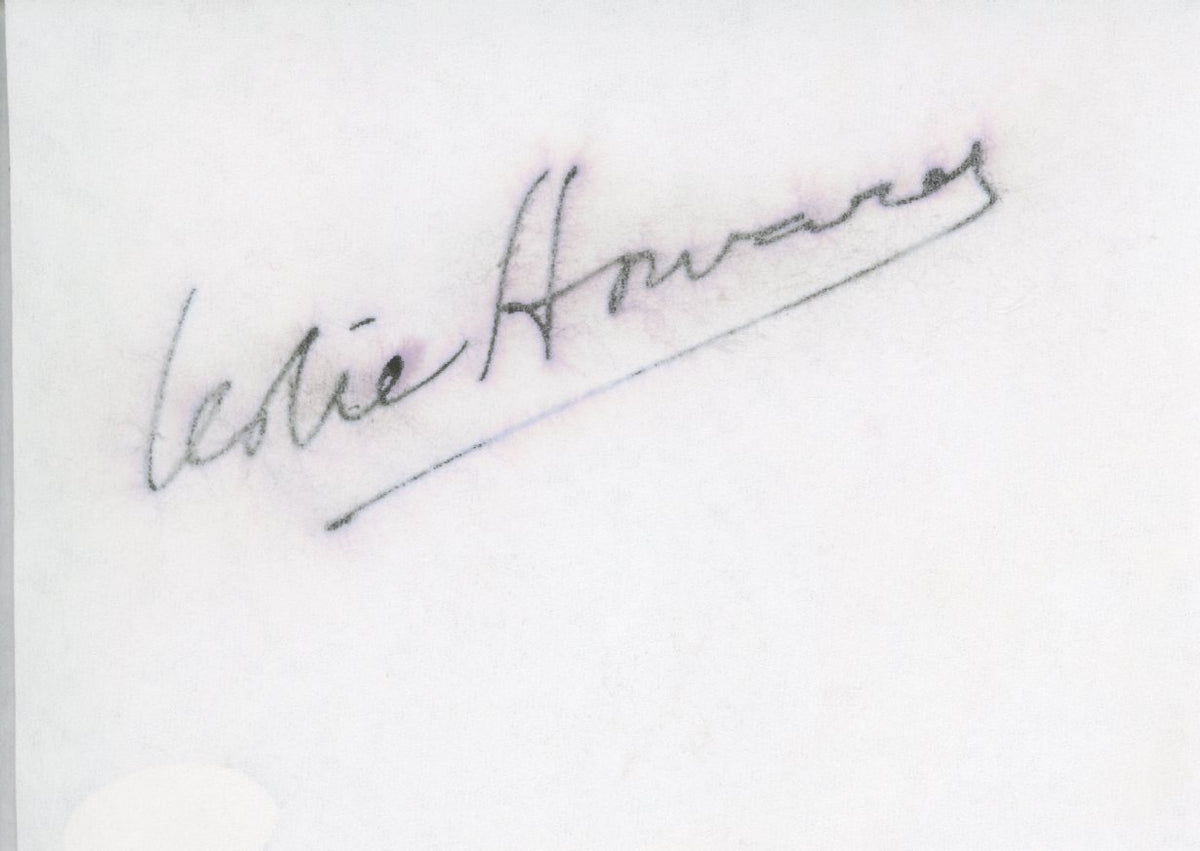 Leslie Howard